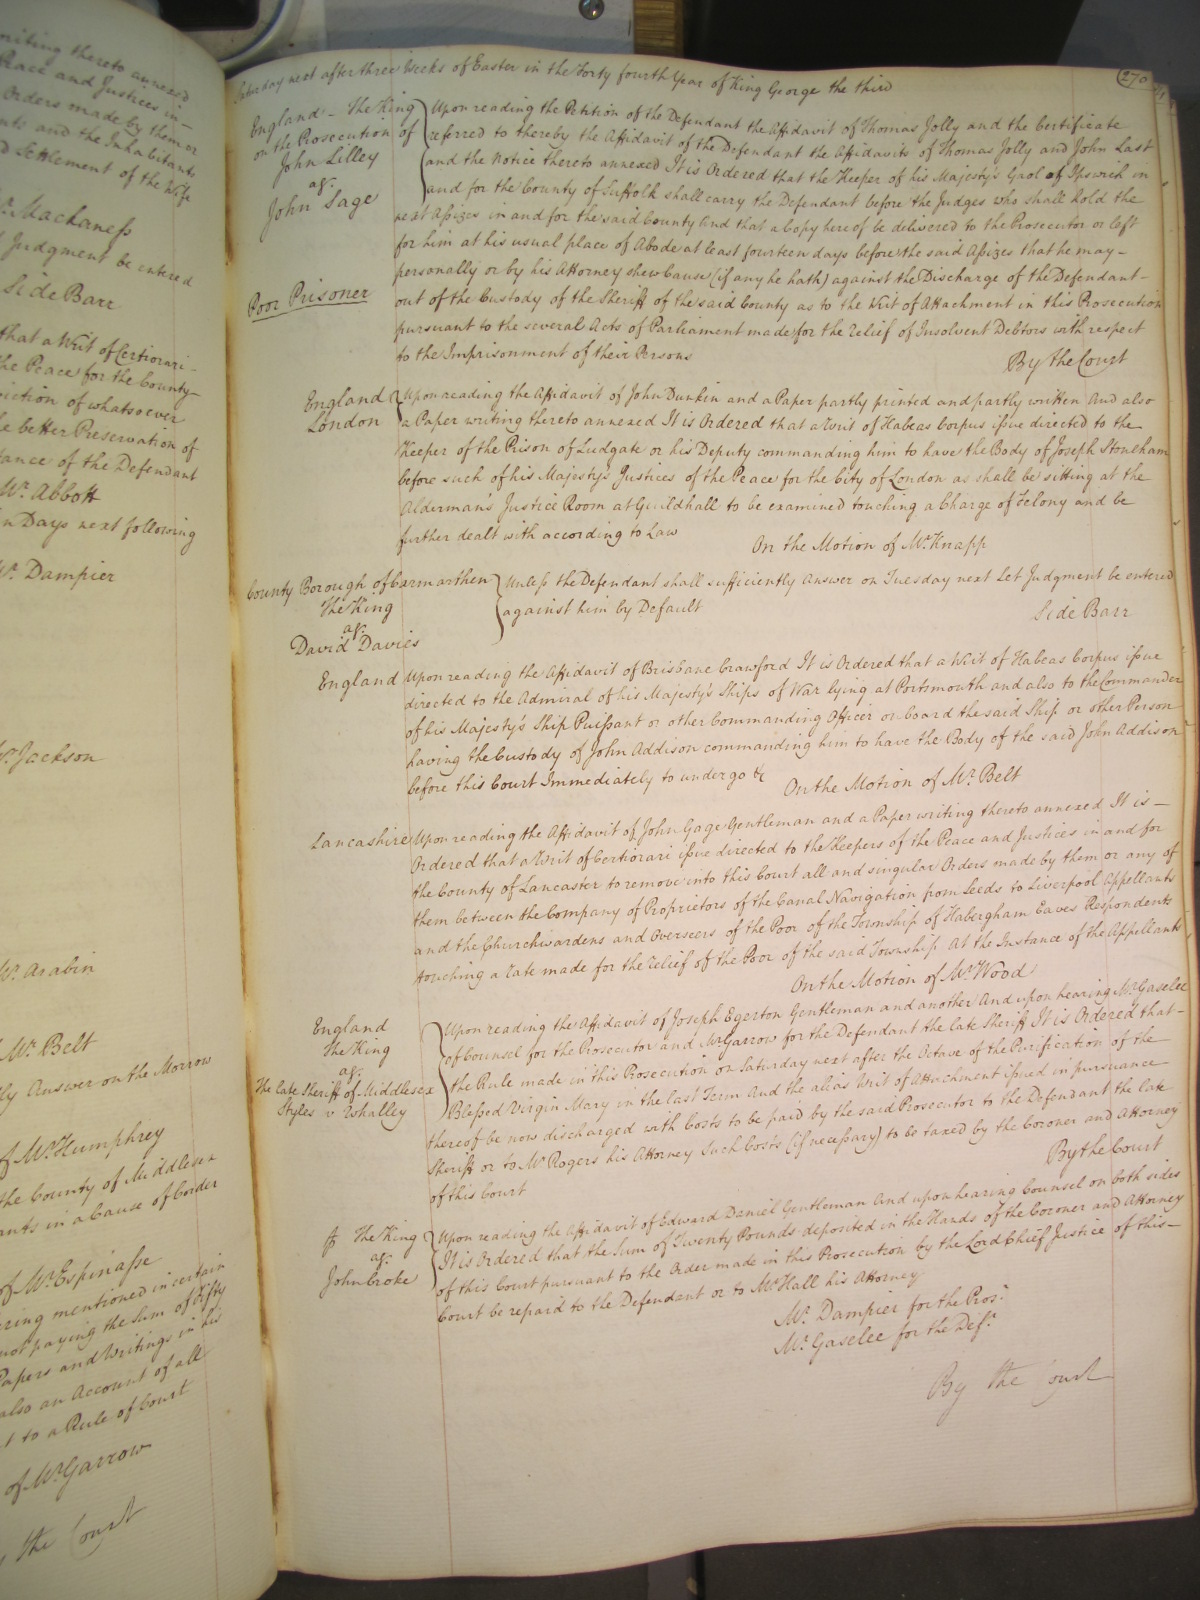 writing thereto annexed
Peace and Justices in
Orders made by them or
and the Inhabitants
Settlement of the Wife
Mr. Mackaness
Judgment be entered
Side Barr
that a Writ of Certiorari
the Peace for the County
of whatsoever
better Preservation of
of the Defendant
Mr. Abbott
Days next following
Mr. Dampier
Mr. Jackson
Mr. Arabin
Mr. Belt
Answer on the Morrow
of Mr. Humphrey
the County of Middlesex
in a Cause of Corder
of Mr. Espinasse
mentioned in certain
not paying the Sum of Fifty
Papers and Writings in his
also an Account of all
to a Rule of Court
of Mr. Garrow
the Court
Saturday next after three Weeks of Easter in the Forty fourth Year of King George the third
270
England - The King
on the Prosecution of
John Lilley
agt.
John Sage
Poor Prisoner
Upon reading the Petition of the Defendant the Affidavit of Thomas Jolly and the Certificate
referred to thereby the Affidavit of the Defendant the Affidavits of Thomas Jolly and John Last
and the Notice thereto annexed It is Ordered that the Keeper of his Majesty's Gaol of Ipswich in
and for the County of Suffolk shall carry the Defendant before the Judges who shall hold the
next Assizes in and for the said County And that a Copy hereof be delivered to the Prosecutor or left
for him at his usual place of Abode at least fourteen days before the said Assizes that he may -
personally or by his Attorney shew Cause (if any he hath) against the Discharge of the Defendant -
out of the Custody of the Sheriff of the said County as to the Writ of Attachment in this Prosecution
pursuant to the several Acts of Parliament made for the relief of Insolvent Debtors with respect
to the Imprisonment of their Persons
By the Court
England
London
Upon reading the Affidavit of John Dunkin and a Paper partly printed and partly written And also
a Paper writing thereto annexed It is Ordered that a Writ of Habeas Corpus issue directed to the
Keeper of the Prison of Ludgate or his Deputy commanding him to have the Body of Joseph Stoneham
before such of his Majesty's Justices of the Peace for the City of London as shall be sitting at the
Alderman's Justice Room at Guildhall to be examined touching a Charge of Felony and be
further dealt with according to Law
On the Motion of Mr. Knapp
County Borough of Carmarthen
The King
agt.
David Davies
Unless the Defendant shall sufficiently Answer on Tuesday next Let Judgment be entered
against him by Default
Side Barr
England
Upon reading the Affidavit of Brisbane Crawford It is Ordered that a Writ of Habeas Corpus issue
directed to the Admiral of his Majesty's Ships of War lying at Portsmouth and also to the Commander
of his Majesty's Ship Puissant or other Commanding Officer on board the said Ship or other Person
having the Custody of John Addison commanding him to have the Body of the said John Addison
before this Court Immediately to undergo &c
On the Motion of Mr. Belt
Lancashire
Upon reading the Affidavit of John Gage Gentleman and a Paper writing thereto annexed It is -
Ordered that a Writ of Certiorari issue directed to the Keepers of the Peace and Justices in and for
the County of Lancaster to remove into this Court all and singular Orders made by them or any of
them between the Company of Proprietors of the Canal Navigation from Leeds to Liverpool Appellants
and the Churchwardens and Overseers of the Poor of the Township of Habergham Eaves Respondents
touching a Rate made for the relief of the Poor of the said Township At the Instance of the Appellants
On the Motion of Mr. Wood
England
The King
agt.
The late Sheriff of Middlesex
Styles v Whalley
Upon reading the Affidavit of Joseph Egerton Gentleman and another And upon hearing Mr. Gaselee
of Counsel for the Prosecutor and Mr. Garrow for the Defendant the late Sheriff It is Ordered that -
the Rule made in this Prosecution on Saturday next after the Octave of the Purification of the
Blessed Virgin Mary in the last Term And the alias Writ of Attachment issued in pursuance
thereof be now discharged with Costs to be paid by the said Prosecutor to the Defendant the late
Sheriff or to Mr. Rogers his Attorney Such Costs (if necessary) to be taxed by the Coroner and Attorney
of this Court
By the Court
The King
agt.
John Croke
Upon reading the Affidavit of Edward Daniel Gentleman And upon hearing Counsel on both sides
It is Ordered that the Sum of Twenty Pounds deposited in the Hands of the Coroner and Attorney
of this Court pursuant to the Order made in this Prosecution by the Lord Chief Justice of this -
Court be repaid to the Defendant or to Mr. Hall his Attorney
Mr. Dampier for the Prosr.
Mr. Gaselee for the Deft.
By the Court